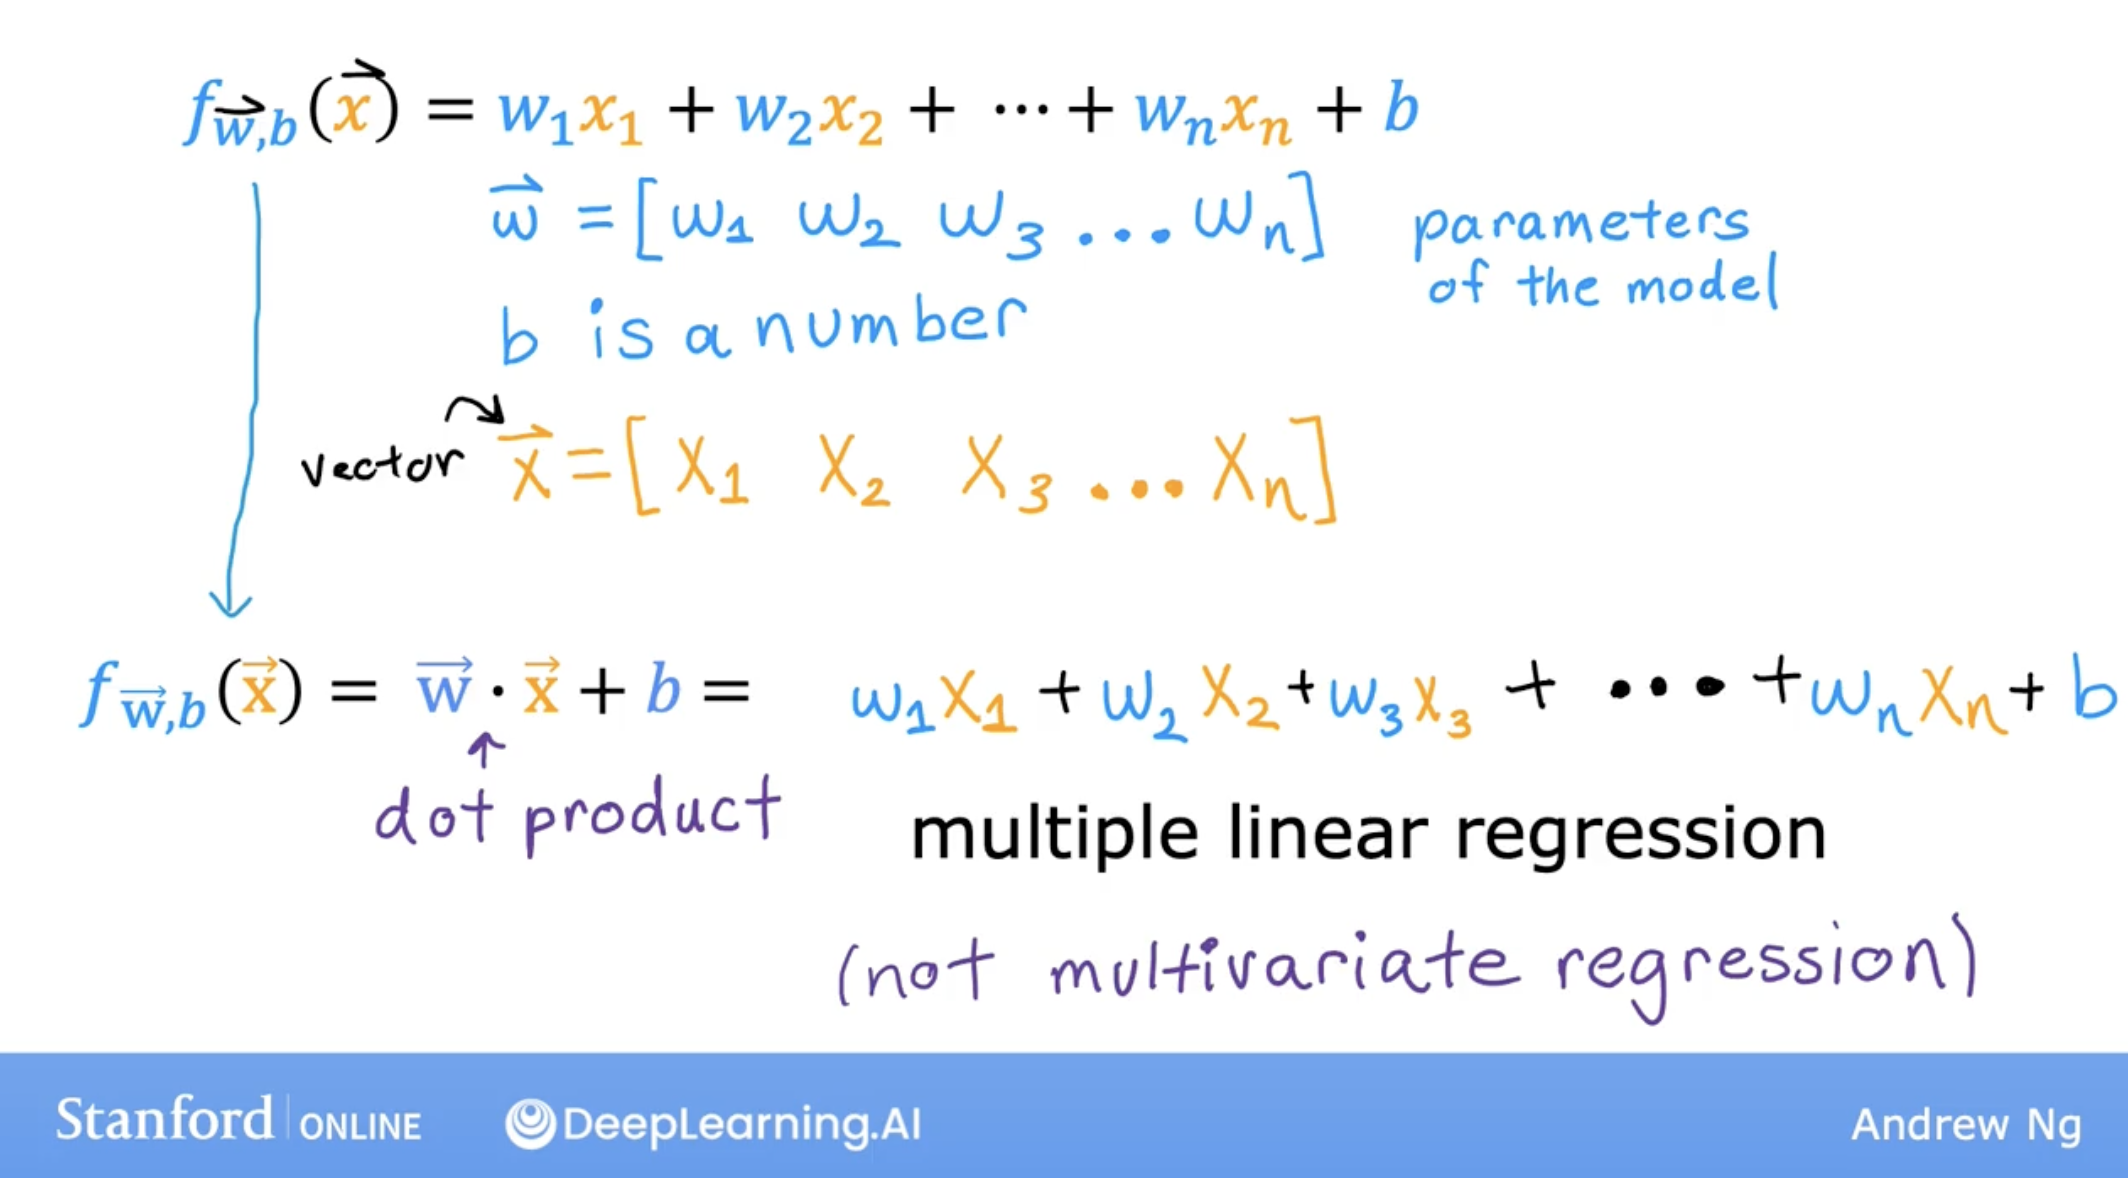 f_{w⃗,b}(x⃗) = w₁x₁ + w₂x₂ + ⋯ + wₙxₙ + b
w⃗ = [w₁ w₂ w₃ ... wₙ] parameters
of the model
b is a number
vector x⃗ = [x₁ x₂ x₃ ... xₙ]
f_{w⃗,b}(x⃗) = w⃗ · x⃗ + b = w₁x₁ + w₂x₂ + w₃x₃ + ... + wₙxₙ + b
dot product
multiple linear regression
(not multivariate regression)
Stanford ONLINE DeepLearning.AI Andrew Ng